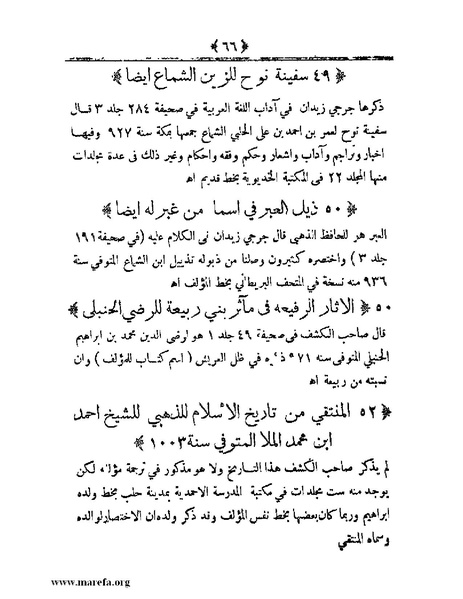 ﴿ ٦٦ ﴾
﴿ ٤٩ سفينة نوح للزين الشماع ايضا ﴾
ذكرها جرجي زيدان في آداب اللغة العربية في صحيفة ٢٨٤ جلد ٣ قال
سفينة نوح لعمر بن احمد بن على الحلبي الشماع جمعها بمكة سنة ٩٢٧ وفيها
اخبار وتراجم وآداب واشعار وحكم وفقه واحكام وغير ذلك فى عدة مجلدات
منها المجلد ٢٢ فى المكتبة الخديوية بخط قديم اه
﴿ ٥٠ ذيل العبر في اسما من غبر له ايضا ﴾
العبر هو للحافظ الذهبي قال جرجي زيدان فى الكلام عليه (في صحيفة ١٩١
جلد ٣ ) واختصره كثيرون وصلنا من ذيوله تذييل ابن الشماع المتوفي سنة
٩٣٦ منه نسخة في المتحف البريطاني بخط المؤلف اه
﴿ ٥٠ الاثار الرفيعه فى مآثر بني ربيعة للرضي الحنبلى ﴾
قال صاحب الكشف فى صحيفة ٤٩ جلد ١ هو لرضي الدين محمد بن ابراهيم
الحنبلي المتوفى سنه ٩٧١ في ظل العريش ( اسم كتاب للمؤلف ) وان
نسبته من ربيعة اه
﴿ ٥٢ المنتقي من تاريخ الاسلام للذهبي للشيخ احمد
ابن محمد الملا المتوفي سنة ١٠٠٣ ﴾
لم يذكر صاحب الكشف هذا التاريخ ولا هو مذكور في ترجمة مؤلفه لكن
يوجد منه ست مجلدات في مكتبة المدرسة الاحمدية بمدينة حلب بخط ولده
ابراهيم وربما كان بعضها بخط نفس المؤلف وقد ذكر ولده ان الاختصار لوالده
وسماه المنتقي
www.marefa.org